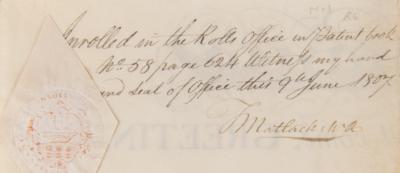 Inrolled in the Rolls Office in Patent book
No. 58 page 624 Witness my hand
and seal of Office this 9th June 1807
T Matlack M.R.